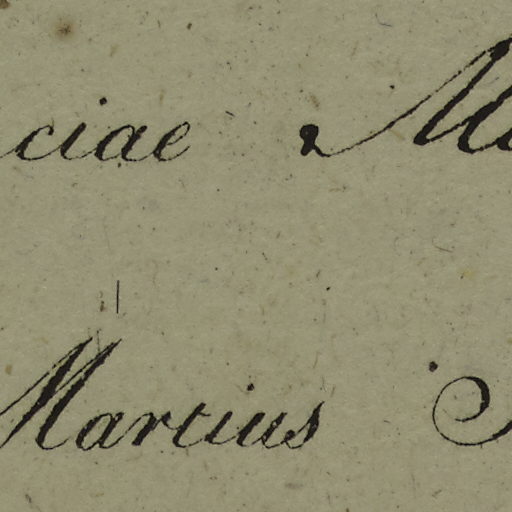 ciae Ma
Martius